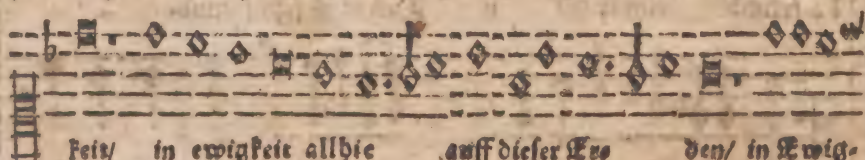 keit/ in ewigkeit allhie auff dieser Er⸗ den/ in Ewig⸗